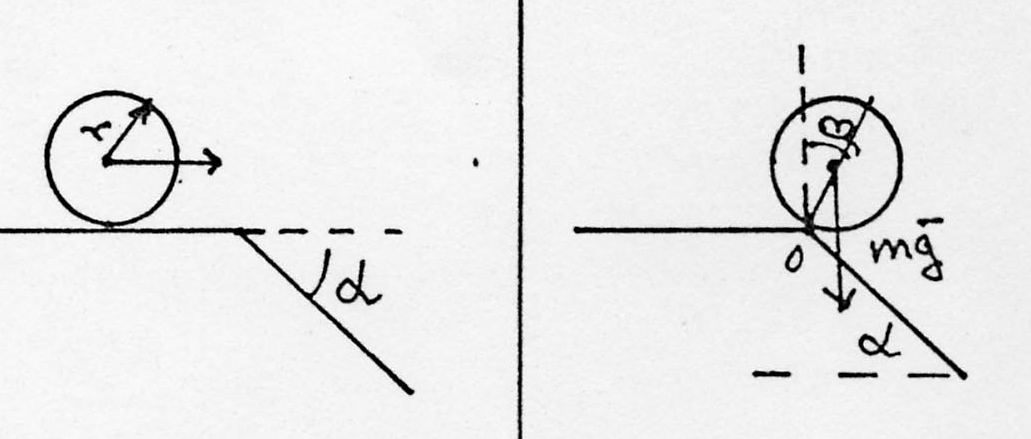 r
α
β
O
mg̅
α